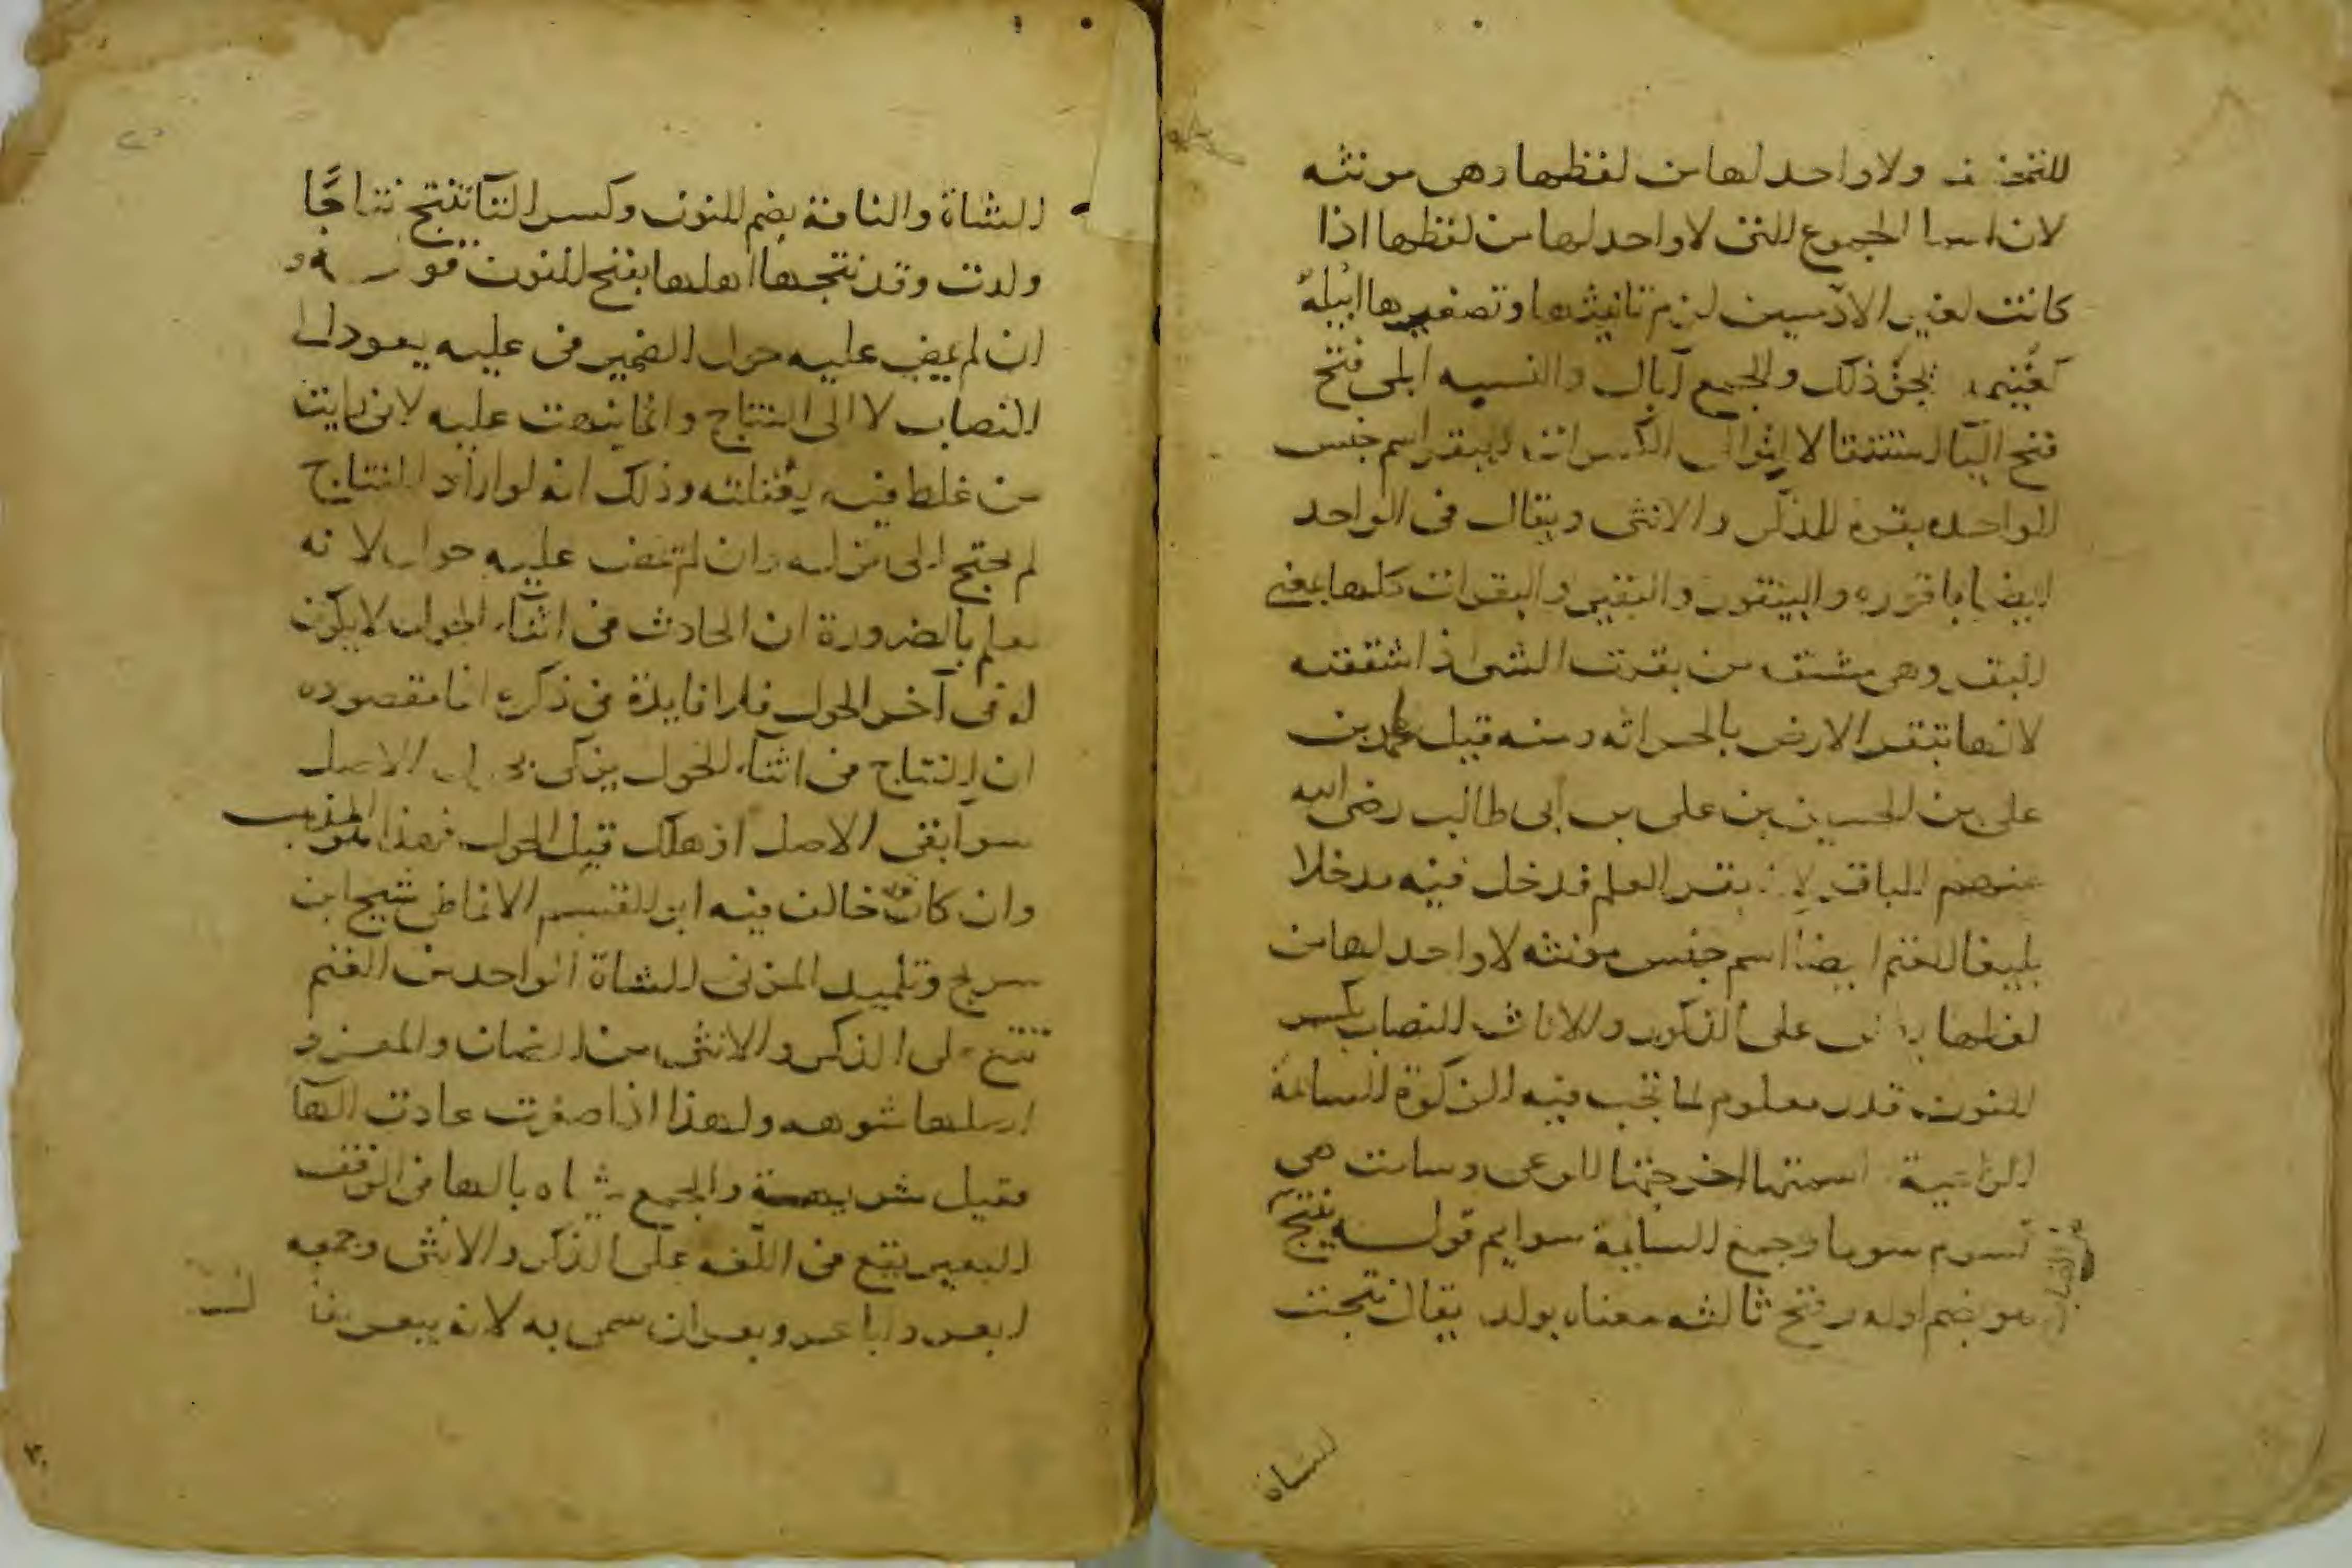 للتخفيف ولا واحد لها من لفظها وهي مونثه
لان اسما الجموع التي لا واحد لها من لفظها اذا
كانت لغير الادميين لزم تانيثها وتصغيرها ابيله
كغنيمه ذلك والجمع آبال والنسبه ابلي فتح
فتح البا استثقالا لتوالي الكسرات البقر اسم جنس
الواحده بقرة للذكر والانثى ويقال في الواحد
ايضا باقوره والبيقور والبقير والبقرات كلها بمعنى
البقر وهي مشتقه من بقرت الشي اذا شققته
لانها تبقر الارض بالحراثه ومنه قيل لمحمد بن
علي بن الحسين بن علي بن ابي طالب رضي الله
عنهم الباقر لانه بقر العلم فدخل فيه مدخلا
بليغا الغنم ايضا اسم جنس مونثه لا واحد لها من
لفظها على الذكور والاناث النصاب بكسر
النون قدر معلوم لما تجب فيه الزكوة السائمة
الراعية اسمتها اخرجتها للرعى وسامت هي
تسوم سوما وجمع السايمة سوايم قولـــه ينتج
هو بضم اوله وفتح ثالثه معناه يولد يقال نتجت
الشاة
الشاة والناقة بضم النون وكسر التآ تنتج نتاجًا
ولدت وقد نتجها اهلها بفتح النون قوله و
ان لم يمض عليه حول الضمير في عليه يعود الى
النصاب لا الى النتاج وانما نبهت عليه لاني رايت
من غلط فيه وذلك انه لو اراد النتاج
لم يحتج الى قوله وان لم يمض عليه حول لانه
يعلم بالضرورة ان الحادث في اثنآء الحول لا يكون
له في آخر الحول فلا فايدة في ذكره انما مقصوده
ان النتاج في اثنآء الحول يزكى بحول الاصل
سوآ بقي الاصل او هلك قبل الحول فهذا المذهب
وان كان قد خالف فيه ابن القسم الانماطي شيخ ابن
سريج وتلميد المزني الشاة الواحد من الغنم
تقع على الذكر والانثى من الضان والمعز و
اصلها شوهه ولهذا اذا صغرت عادت الهآ
فقيل شويهة والجمع شياه بالها في الوقف
البعير يقع في اللغه على الذكر والانثى وجمعه
ابعره واباعر وبعران سمى به لانه يبعر يقا